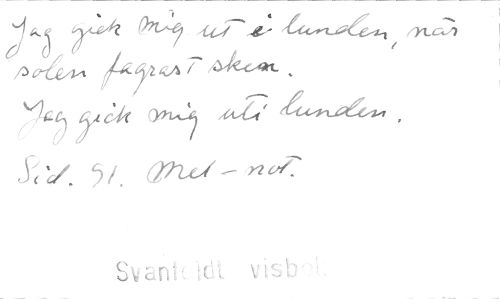 Jag gick mig ut i lunden, när
solen fagrast sken.
Jag gick mig uti lunden.
Sid. 91. Mel-not.
visbok.